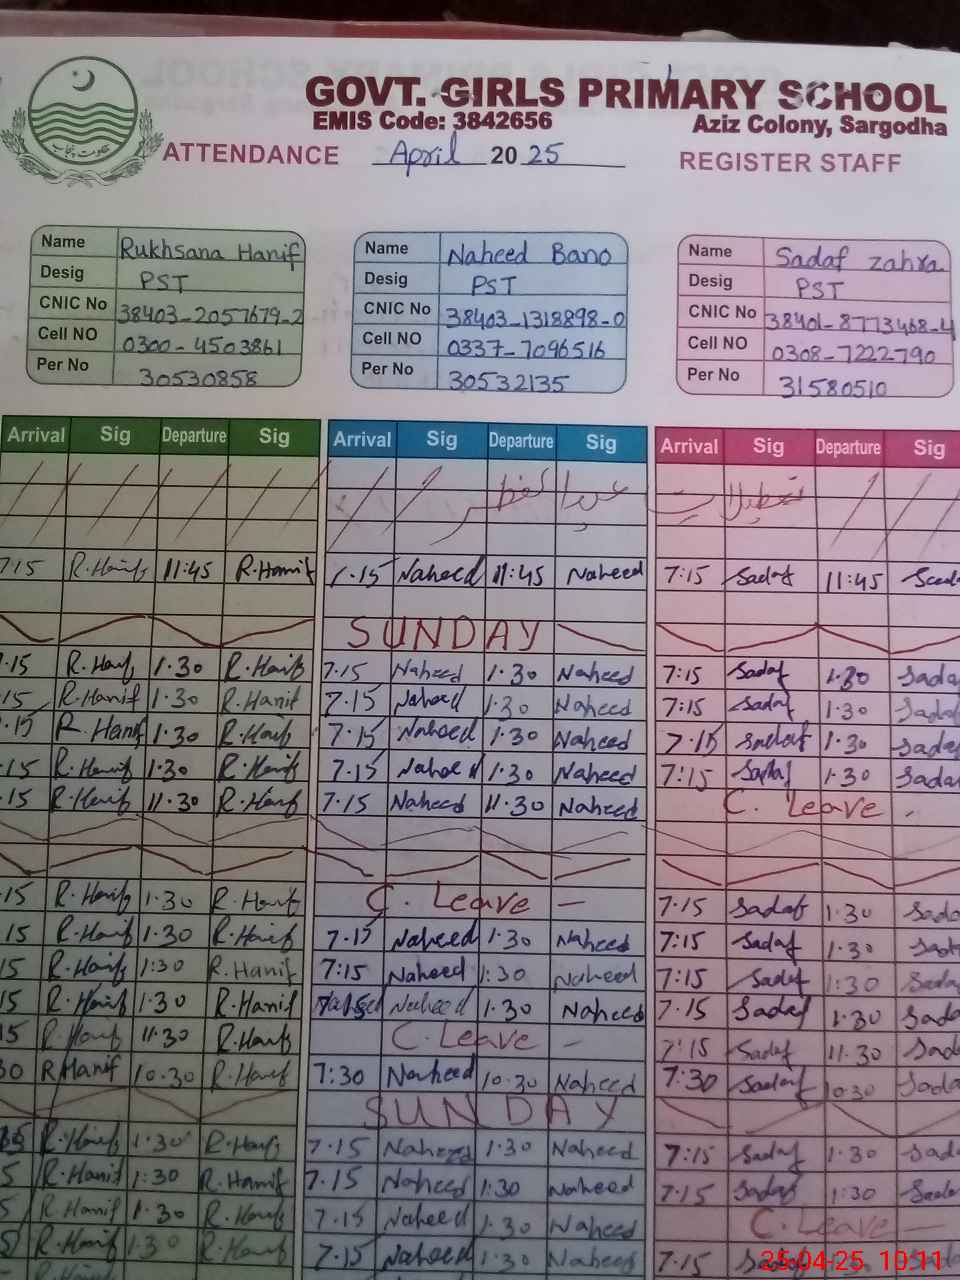 GOVT. GIRLS PRIMARY SCHOOL
EMIS Code: 3842656
Aziz Colony, Sargodha
ATTENDANCE April 2025 REGISTER STAFF
Name Rukhsana Hanif Name Naheed Bano Name Sadaf zahra
Desig PST Desig PST Desig PST
CNIC No 38403-2057679-2 CNIC No 38403-1318898-0 CNIC No 38401-8773468-4
Cell NO 0300-4503861 Cell NO 0337-7096516 Cell NO 0308-7222790
Per No 30530858 Per No 30532135 Per No 31580510
Arrival Sig Departure Sig Arrival Sig Departure Sig Arrival Sig Departure Sig
عید الفطر تعطیلات
7.15 R.Hanif 11:45 R.Hanif 7.15 Naheed 11:45 Naheed 7:15 Sadaf 11:45 Sad
SUNDAY
.15 R.Hanif 1.30 R.Hanif 7.15 Naheed 1.30 Naheed 7:15 Sadaf 1.30 Sada
.15 R.Hanif 1.30 R.Hanif 7.15 Naheed 1.30 Naheed 7:15 Sadaf 1.30 Sada
.15 R.Hanif 1.30 R.Hanif 7.15 Naheed 1.30 Naheed 7.15 Sadaf 1.30 Sada
.15 R.Hanif 1.30 R.Hanif 7.15 Naheed 1.30 Naheed 7:15 Sadaf 1.30 Sada
.15 R.Hanif 11.30 R.Hanif 7.15 Naheed 11.30 Naheed C. Leave -
.15 R.Hanif 1.30 R.Hanif C. Leave - 7.15 Sadaf 1.30 Sada
15 R.Hanif 1.30 R.Hanif 7.15 Naheed 1.30 Naheed 7:15 Sadaf 1.30 Sada
15 R.Hanif 1:30 R.Hanif 7:15 Naheed 1:30 Naheed 7:15 Sadaf 1:30 Sada
15 R.Hanif 1.30 R.Hanif 7.15 Naheed 1.30 Naheed 7.15 Sadaf 1.30 Sada
15 R.Hanif 11.30 R.Hanif C. Leave - 7:15 Sadaf 11.30 Sada
30 R.Hanif 10.30 R.Hanif 7:30 Naheed 10.30 Naheed 7:30 Sadaf 10:30 Sada
SUNDAY
15 R.Hanif 1.30 R.Hanif 7.15 Naheed 1.30 Naheed 7:15 Sadaf 1.30 Sad
5 R.Hanif 1:30 R.Hanif 7.15 Naheed 1:30 Naheed 7:15 Sadaf 1:30 Sada
5 R.Hanif 1.30 R.Hanif 7.15 Naheed 1.30 Naheed C. Leave -
5 R.Hanif 1.30 R.Hanif 7.15 Naheed 1.30 Naheed 7.15
25-04-25 10:11